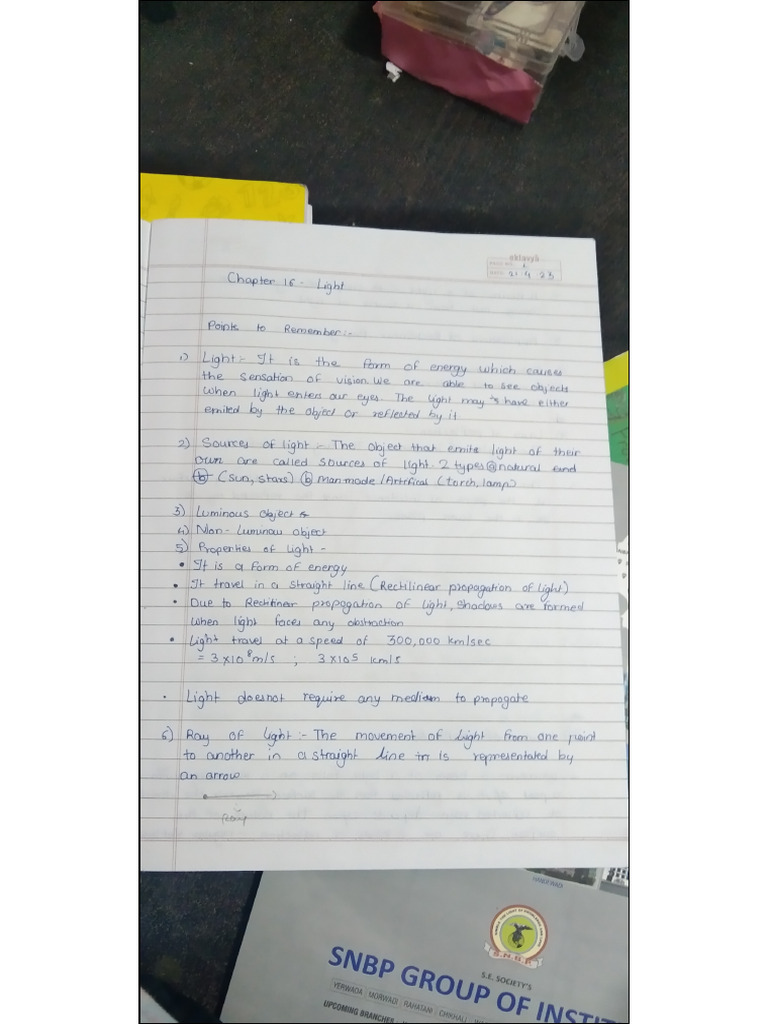 eklavya
PAGE NO.
DATE: 21 9 23
Chapter 16 - Light
Points to Remember:-
1) Light:- It is the form of energy which causes
the sensation of vision. We are able to see objects
when light enters our eyes. The light may have either
emiled by the object or reflected by it
2) Sources of light:- The object that emits light of their
own are called sources of light. 2 types @ natural and
(b) (sun, stars) (b) man made /Artifical (torch, lamp)
3) Luminous object
4) Non-Luminous object
5) Properties of Light -
• It is a form of energy
• It travel in a straight line (Rectilinear propagation of light)
• Due to Rectilinear propagation of light, shadows are formed
when light faces any obstraction
• Light travel at a speed of 300,000 km/sec
= 3 x 10⁸ m/s ; 3 x 10⁵ km/s
• Light doesnot require any medium to propogate
6) Ray of light:- The movement of light from one point
to another in a straight line is representated by
an arrow
Ray
HANDEWADI
S.N.B.P.
S.E. SOCIETY'S
SNBP GROUP OF INSTIT
YERWADA MORWADI RAHATANI CHIKHALI
UPCOMING BRANCHES